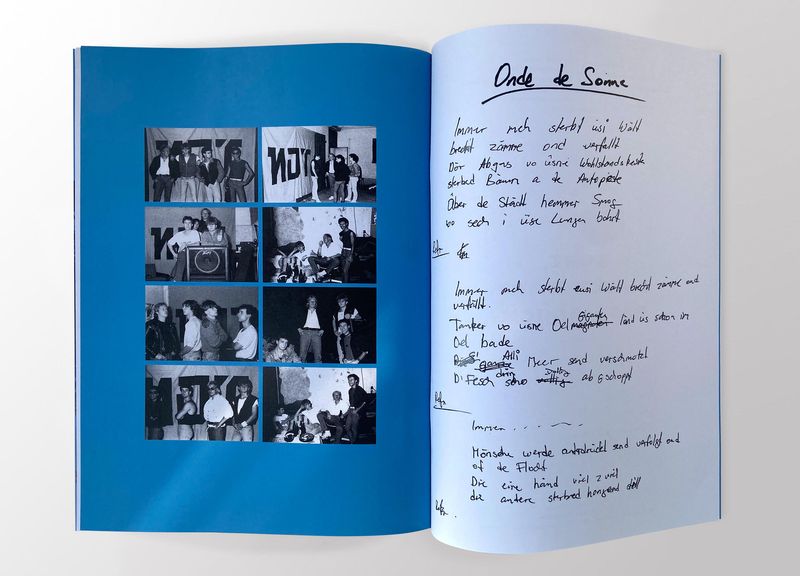 Onde de Sonne
Immer meh sterbt üsi Wält
brecht zäme ond verfallt
Dör Abgas vo üsne Wohlstandskeste
sterbed Bäum a de Autopiste
Über de Städt hemmer Smog
wo sech i üse Lunge bohrt
Refr.
Immer meh sterbt eusi Wält brecht zäme ond
verfallt.
Tanker vo üsne Oel Giganten länd üs schon im
Oel bade
Alli Meer send verschmotzt
D'Fesch drin ab gschoppt
Refr.
Immer . . .
Mönsche werde onterdrückt send verfolgt ond
of de Flocht
Die eine händ viel z'viel
die andere sterbed
Refr.